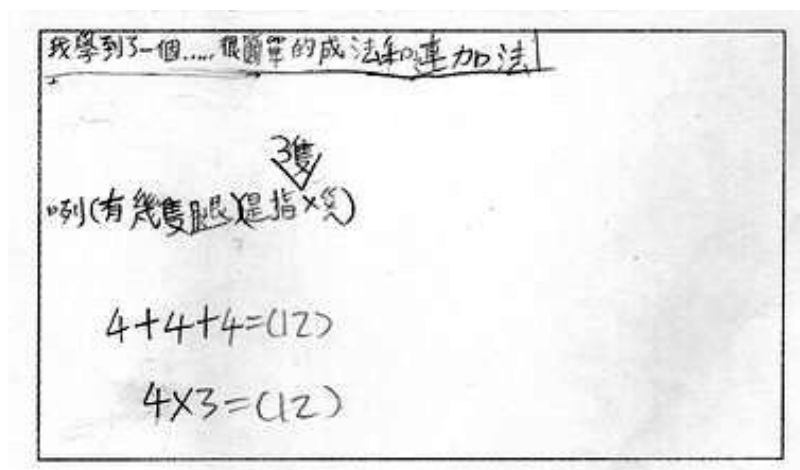 我學到了一個.....很簡單的成法和連加法
3隻
咧(有幾隻腿)(是指×隻)
4+4+4=(12)
4×3=(12)